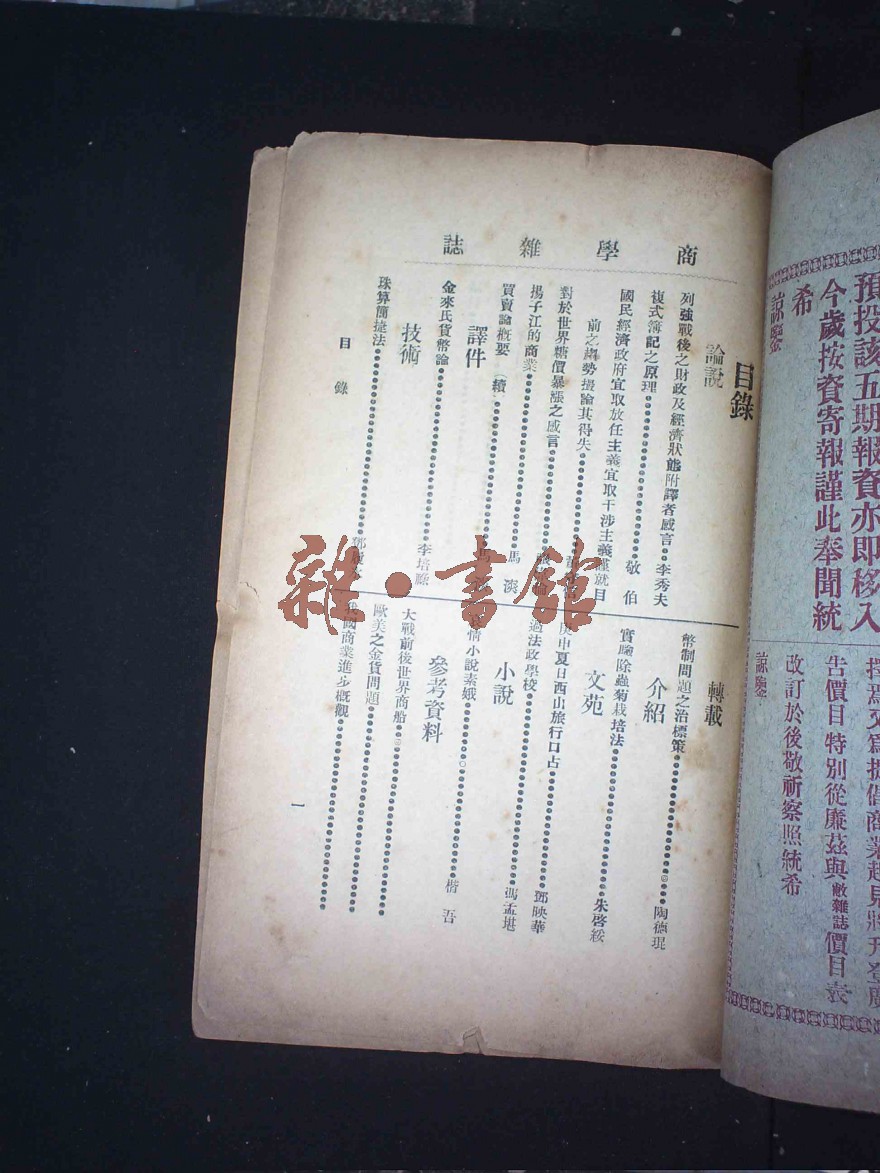 商學雜誌
目錄
論說
列強戰後之財政及經濟狀態附譯者感言 李秀夫
複式簿記之原理 敬伯
國民經濟政府宜取放任主義宜取干涉主義謹就目
前之趨勢擬論其得失
對於世界糖價暴漲之感言
揚子江的商業 馬
買賣論概要(續)
譯件
金來氏貨幣論 李培
技術
珠算簡捷法
轉載
幣制問題之治標策 陶德琨
介紹
實驗除蟲菊栽培法 朱啓綏
文苑
庚申夏日西山旅行口占 鄧映華
過法政學校 馮孟堪
小說
情小說素娥 楷吾
參考資料
大戰前後世界商船
歐美之金貨問題
我國商業進步概觀
目錄
一
雜·書館
預投該五期報資亦即移入
今歲按資寄報謹此奉聞統
希
諒鑒
擇爲文爲提倡商業起見將刊登廣
告價目特別從廉茲與敝雜誌價目表
改訂於後敬祈察照統希
諒鑒